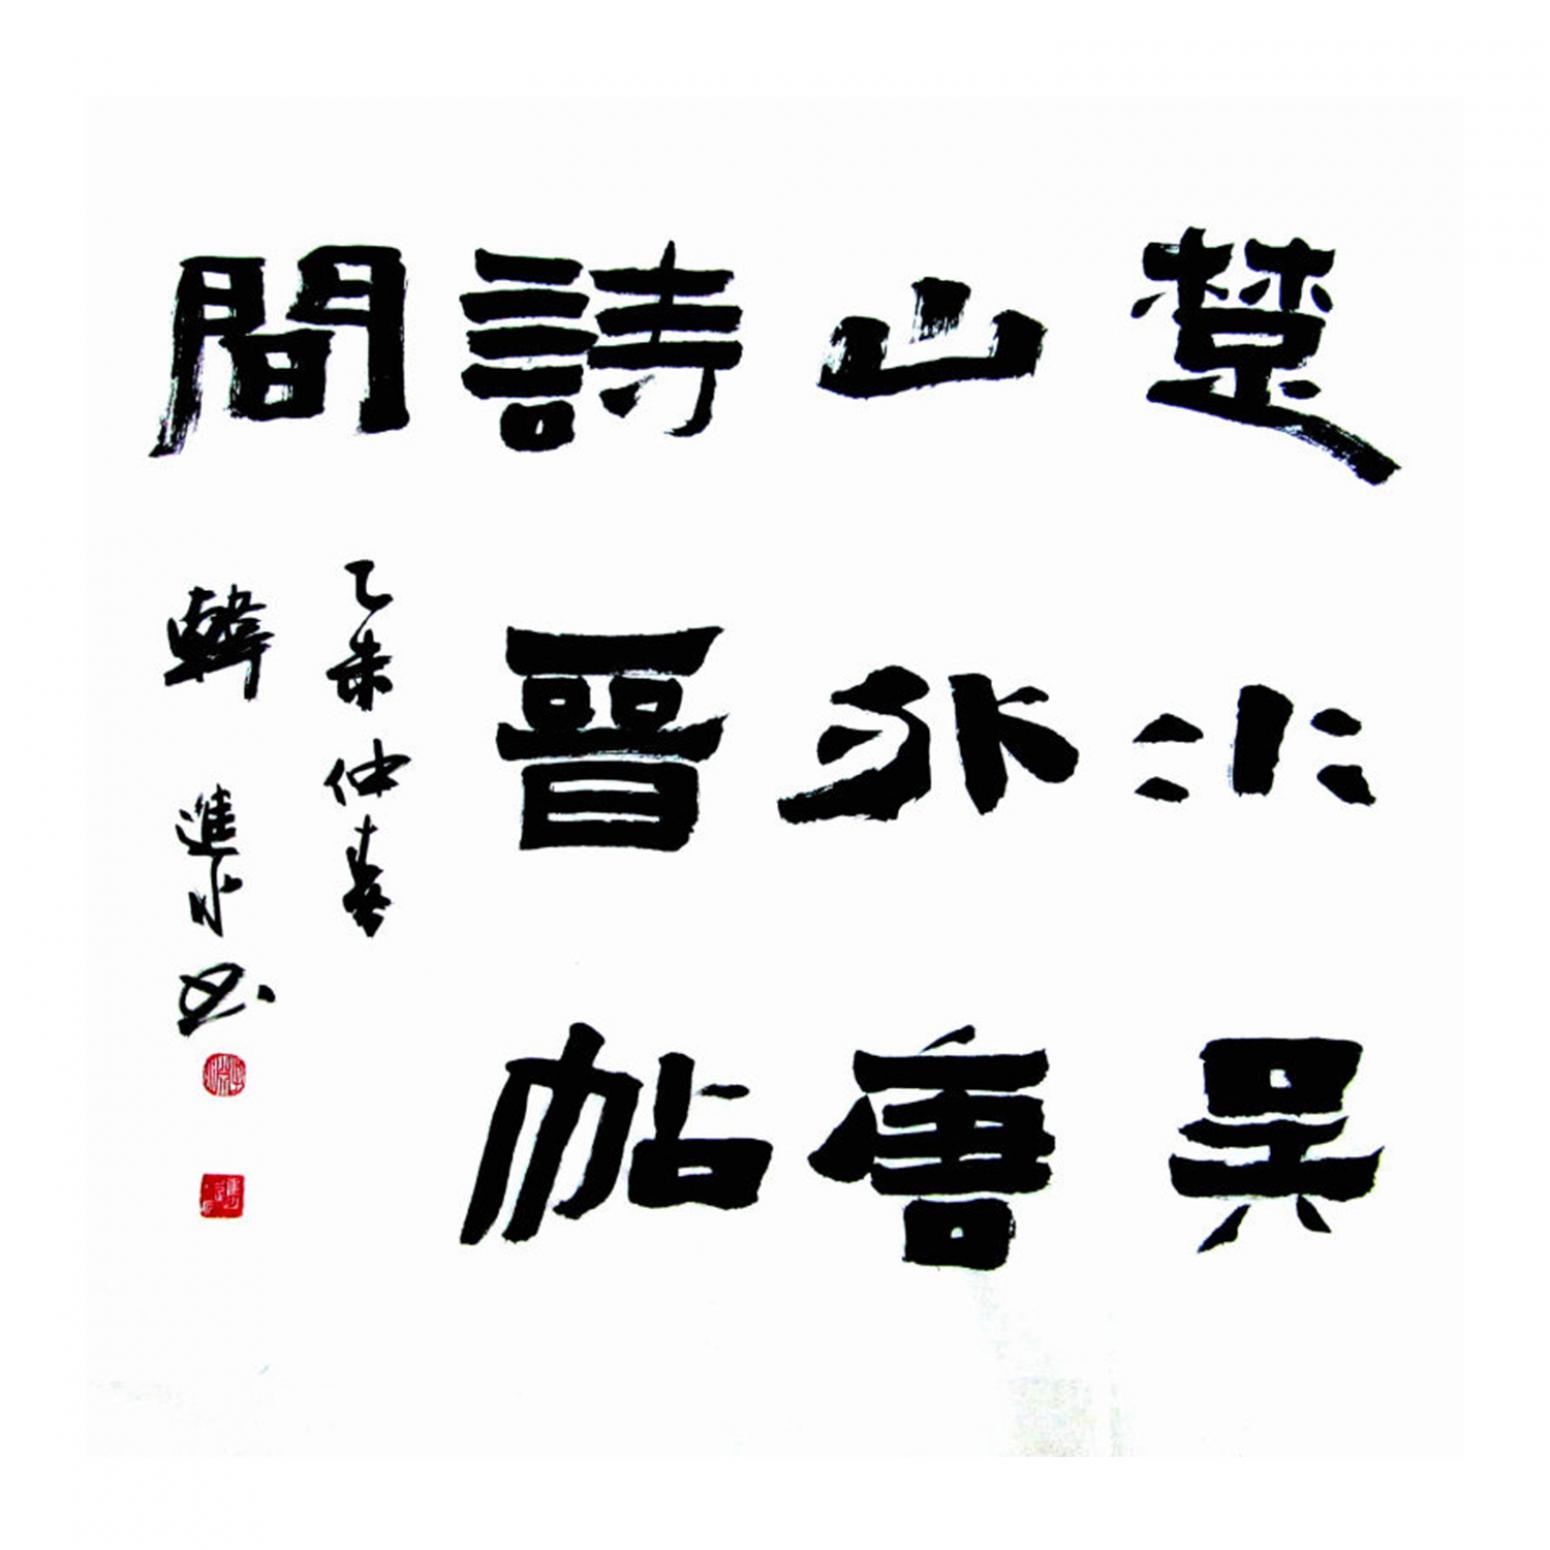 楚水吳
山外唐
詩晉帖
間
乙未仲春
韓進水书